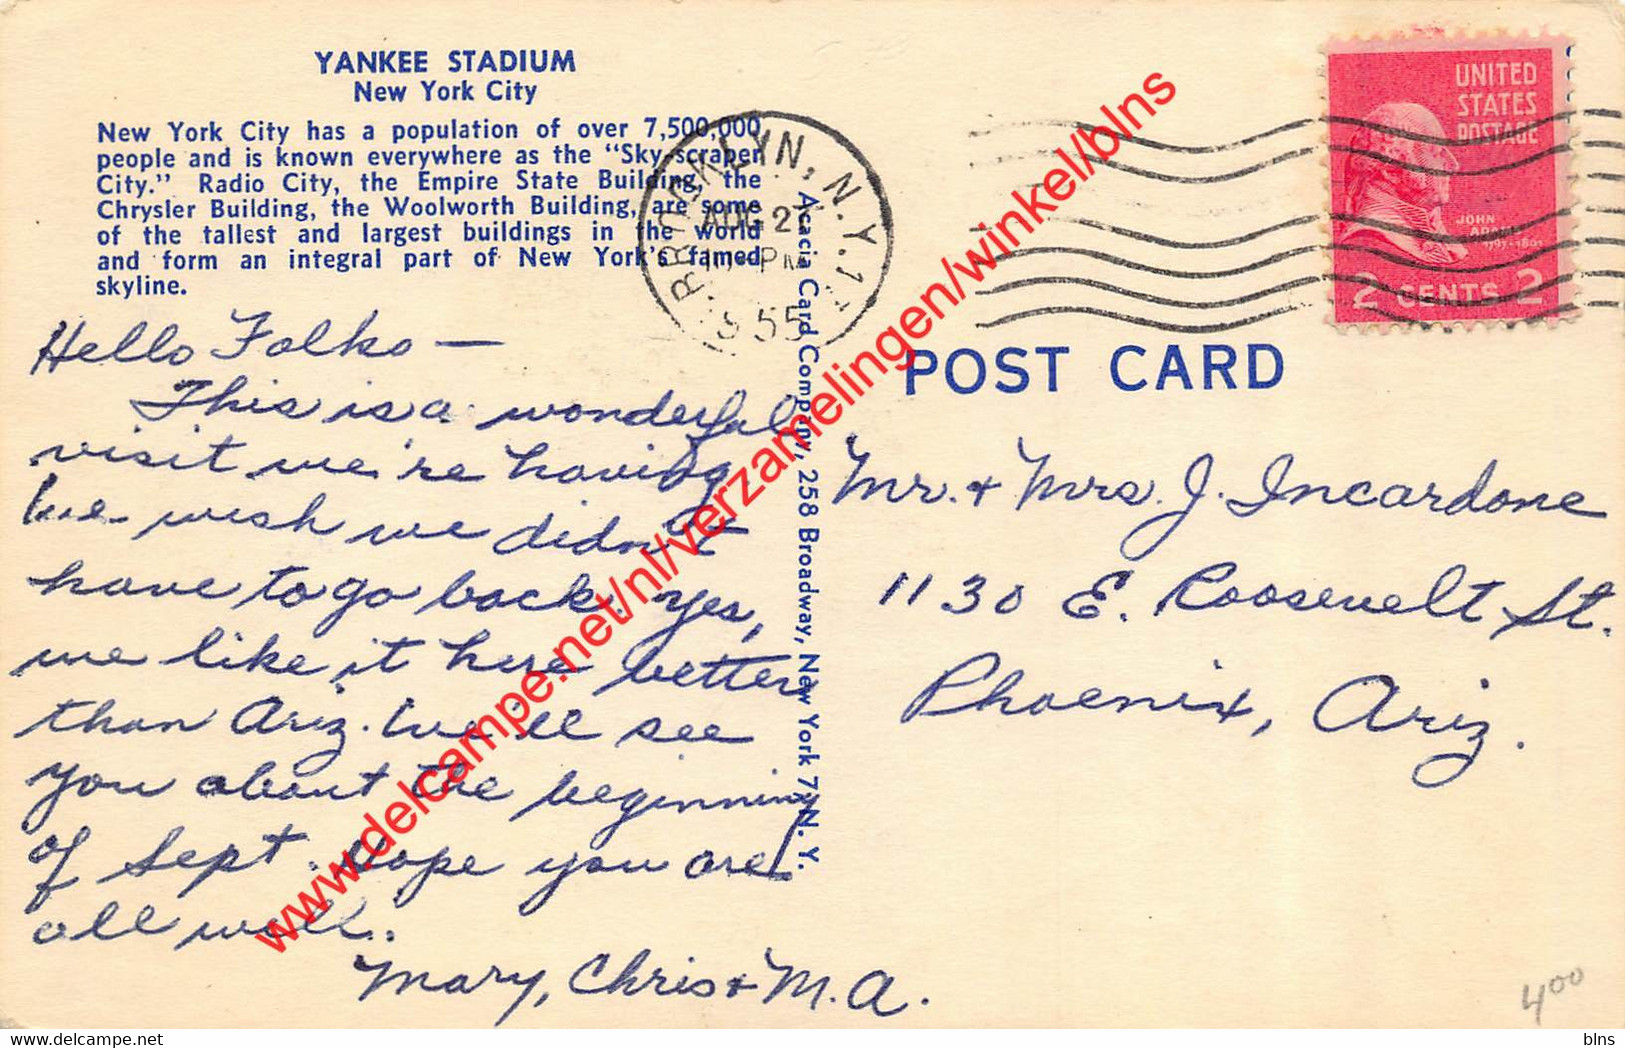 YANKEE STADIUM
New York City
New York City has a population of over 7,500,000
people and is known everywhere as the "Sky scraper
City." Radio City, the Empire State Building, the
Chrysler Building, the Woolworth Building, are some
of the tallest and largest buildings in the world
and form an integral part of New York's famed
skyline.
Hello Folks —
This is a wonderful
visit we're having
We wish we didn't
have to go back. Yes,
we like it here better
than Ariz. We'll see
you about the beginning
of Sept. Hope you are
all well.
Mary, Chris & M.A.
Acacia Card Company, 258 Broadway, New York 7, N. Y.
BROOKLYN, N.Y.
AUG 2
PM
1955
UNITED
STATES
POSTAGE
JOHN
ADAMS
1797-1801
2 CENTS 2
POST CARD
Mr. & Mrs. J. Incardone
1130 E. Roosevelt St.
Phoenix, Ariz.
4.00
www.delcampe.net/nl/verzamelingen/winkel/blns
blns